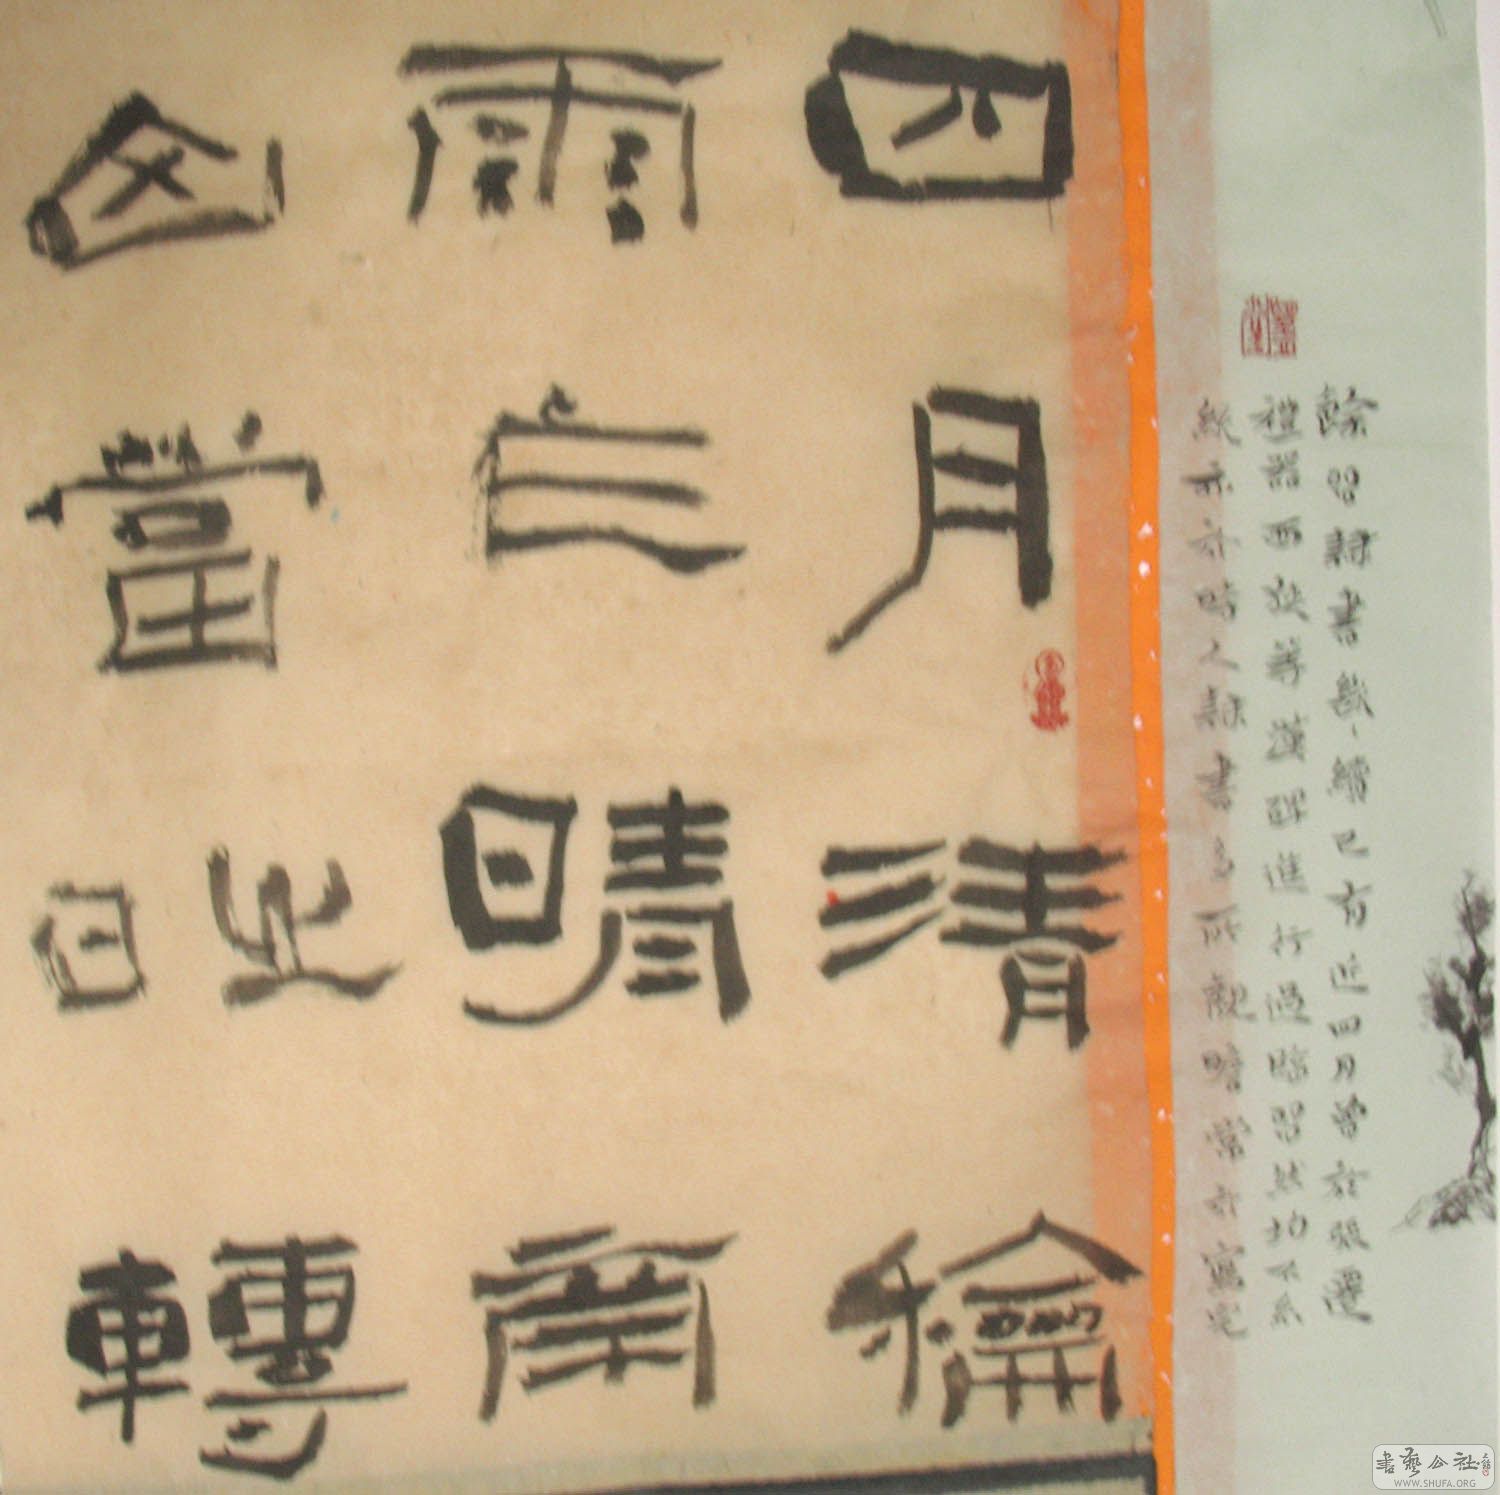 餘習隸書斷、續已有近四月曾於張遷
禮器西狹等漢碑進行過臨習然均不系
統亦時人隸書多所觀瞻常亦
四月清龢
雨乍晴南
當轉
書藝公社
WWW.SHUFA.ORG